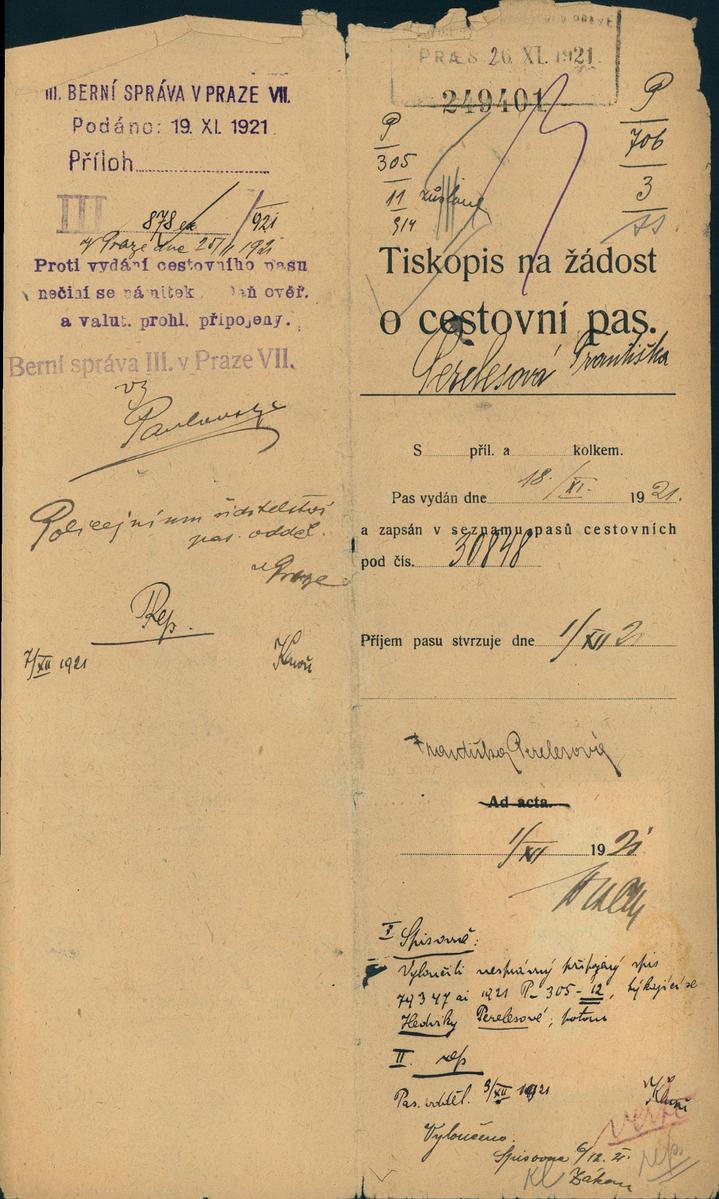 III. BERNÍ SPRÁVA V PRAZE VII.
Podáno: 19. XI. 1921
Příloh
III 878 ex / 921
V Praze dne 25/11 1921
Proti vydání cestovního pasu
nečiní se námitek. Daň ověř.
a valut. prohl. připojeny.
Berní správa III. v Praze VII.
Policejnímu ředitelství
pas. odděl.
v Praze
Rep.
7/XII 1921
PRAES. 26. XI. 1921
249401
P
305
11
914
P
706
3
Tiskopis na žádost
o cestovní pas.
Perelesová Františka
S příl. a kolkem.
Pas vydán dne 18./XI. 1921.
a zapsán v seznamu pasů cestovních
pod čís. 30848
Příjem pasu stvrzuje dne 1/XII 21
Františka Perelesová
Ad acta.
1/XII 1921
I Spisovně:
Vyloučiti nesprávný připojený spis
79347 ai 1921 P-305-12, týkající se
Hedviky Perelesové; potom
II. rep
Pas. odděl. 3/XII 1921
Vyloučeno.
Spisovna 6/12. 21.
rep.